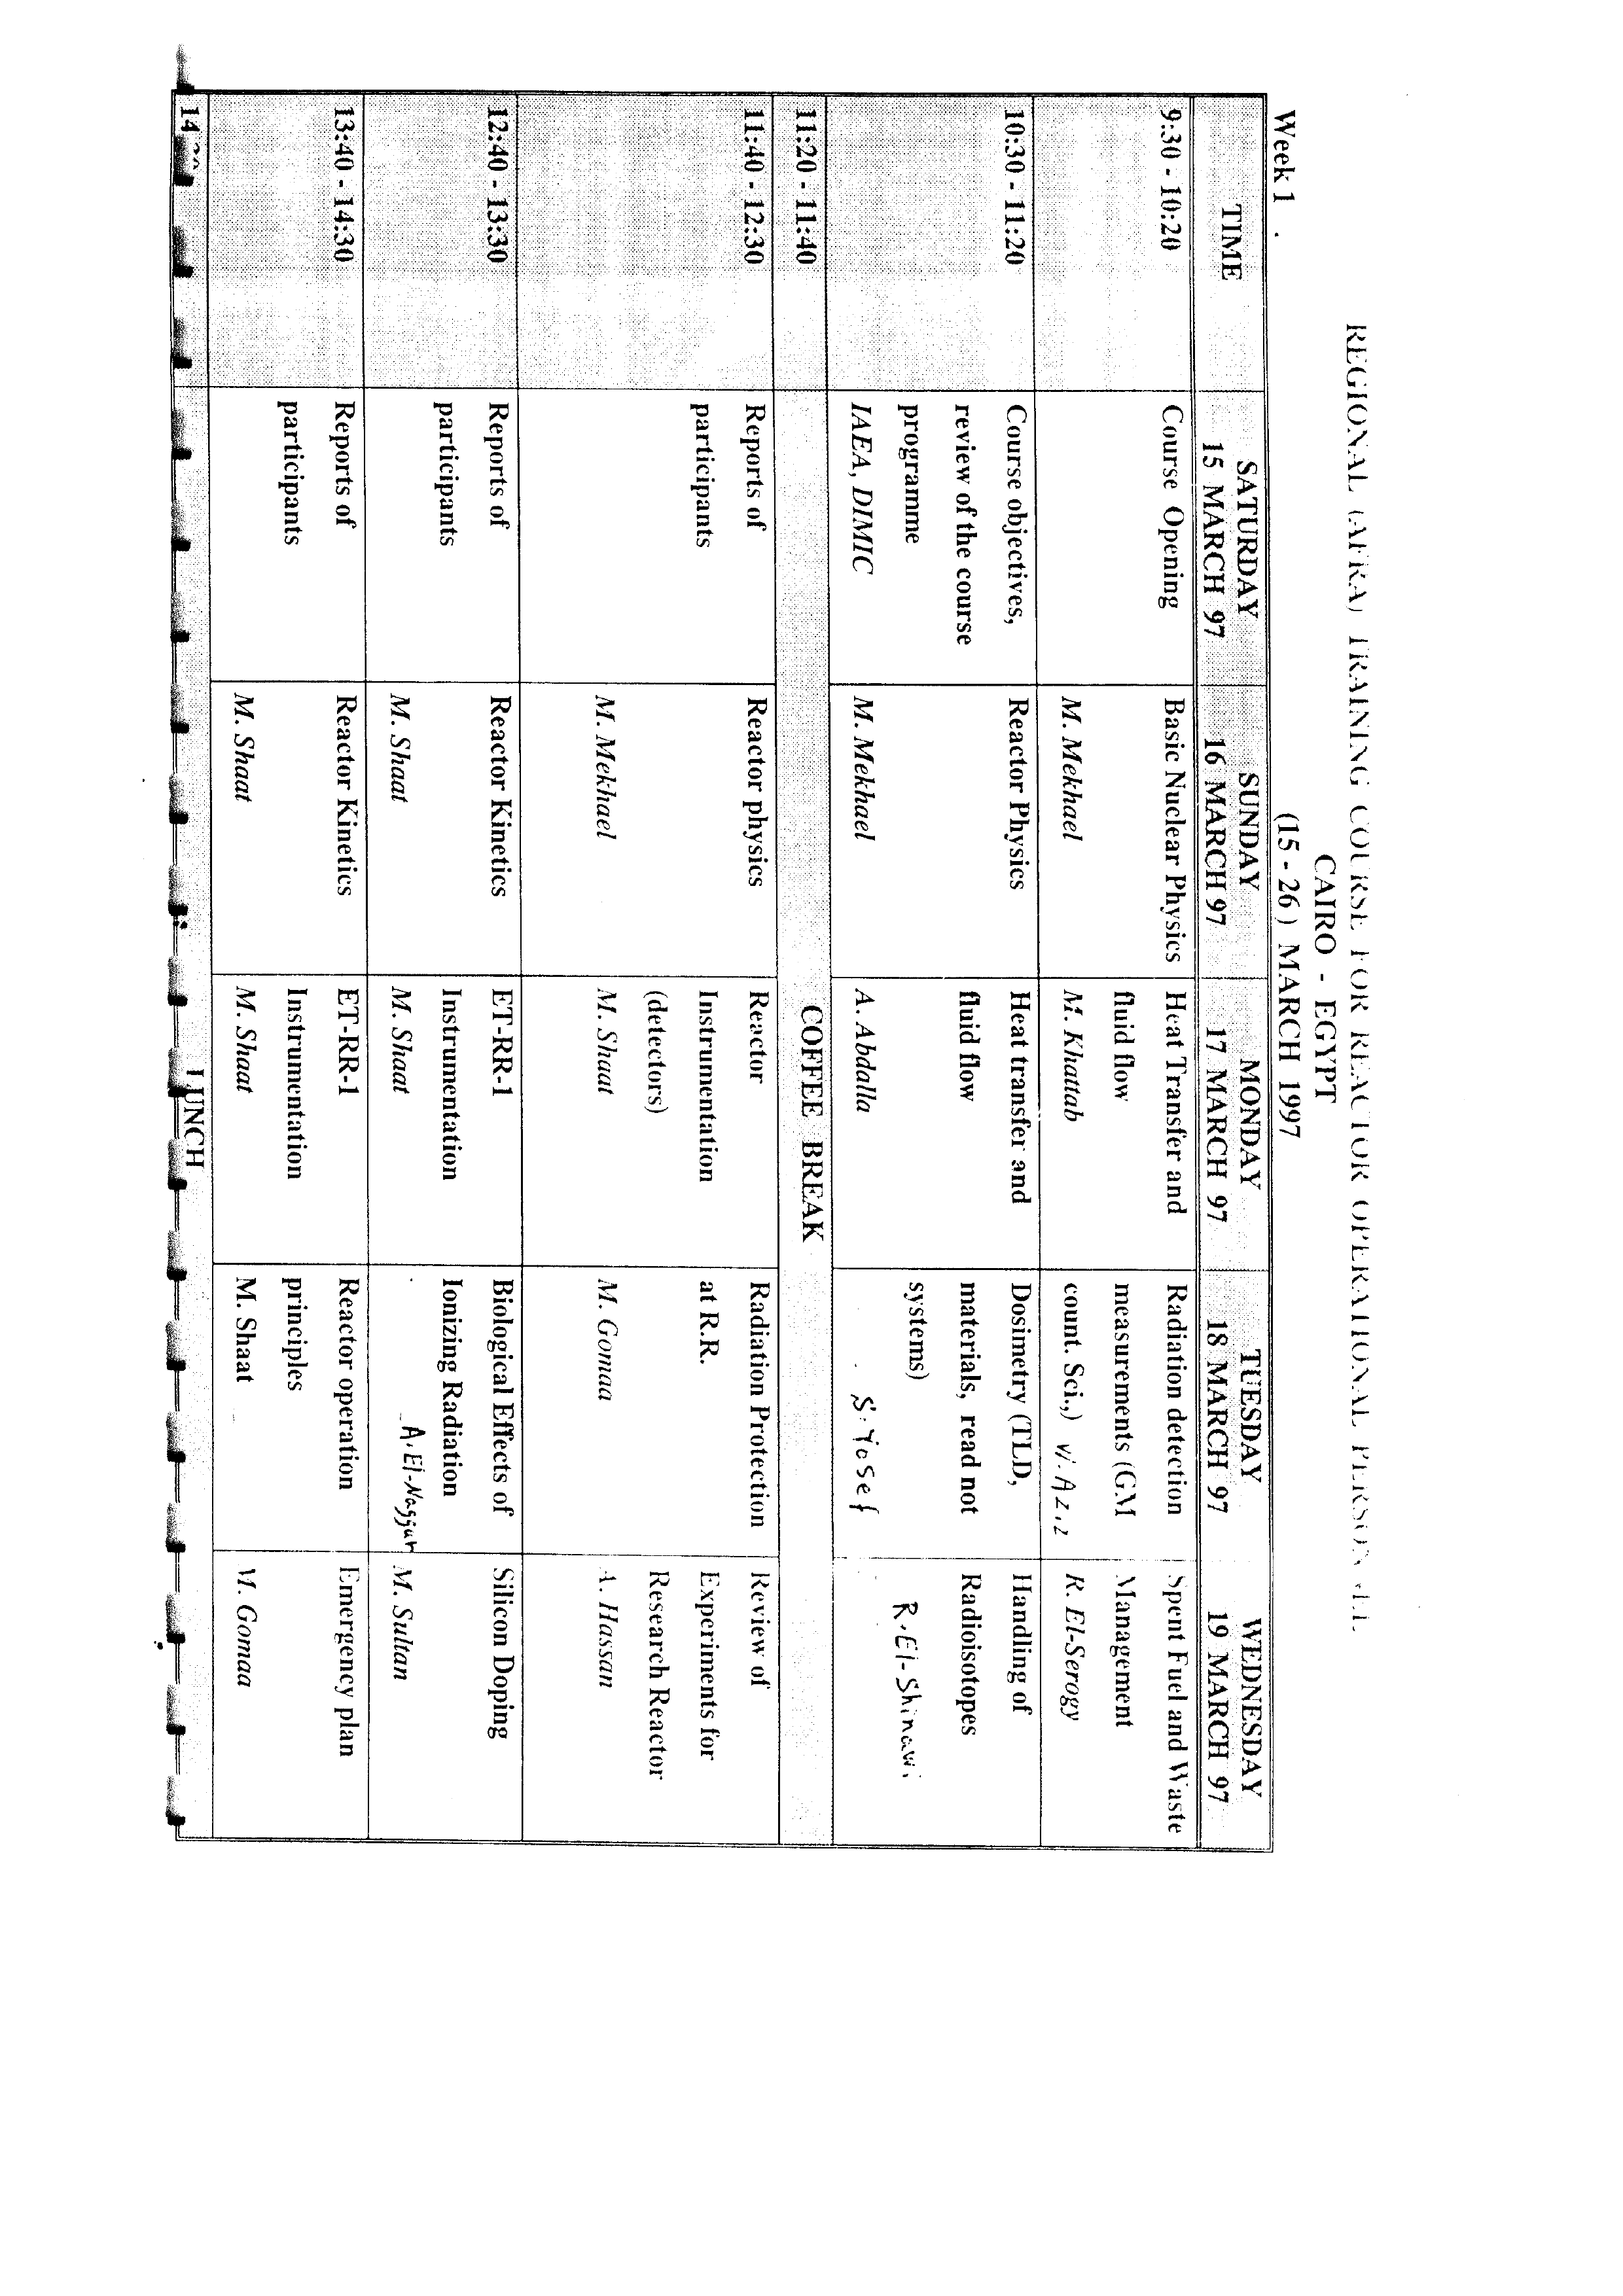 REGIONAL (AFRA) TRAINING COURSE FOR REACTOR OPERATIONAL PERSONNEL
CAIRO - EGYPT
(15 - 26) MARCH 1997
Week 1
TIME
SATURDAY
15 MARCH 97
SUNDAY
16 MARCH 97
MONDAY
17 MARCH 97
TUESDAY
18 MARCH 97
WEDNESDAY
19 MARCH 97
9:30 - 10:20
Course Opening
Basic Nuclear Physics
M. Mekhael
Heat Transfer and
fluid flow
M. Khattab
Radiation detection
measurements (GM
count. Sci.,) W. Aziz
Spent Fuel and Waste
Management
R. El-Serogy
10:30 - 11:20
Course objectives,
review of the course
programme
IAEA, DIMIC
Reactor Physics
M. Mekhael
Heat transfer and
fluid flow
A. Abdalla
Dosimetry (TLD,
materials, read not
systems)
S. Yosef
Handling of
Radioisotopes
R. El-Shinawi
11:20 - 11:40
COFFEE BREAK
11:40 - 12:30
Reports of
participants
Reactor physics
M. Mekhael
Reactor
Instrumentation
(detectors)
M. Shaat
Radiation Protection
at R.R.
M. Gomaa
Review of
Experiments for
Research Reactor
A. Hassan
12:40 - 13:30
Reports of
participants
Reactor Kinetics
M. Shaat
ET-RR-1
Instrumentation
M. Shaat
Biological Effects of
Ionizing Radiation
A. El-Naggar
Silicon Doping
M. Sultan
13:40 - 14:30
Reports of
participants
Reactor Kinetics
M. Shaat
ET-RR-1
Instrumentation
M. Shaat
Reactor operation
principles
M. Shaat
Emergency plan
M. Gomaa
LUNCH